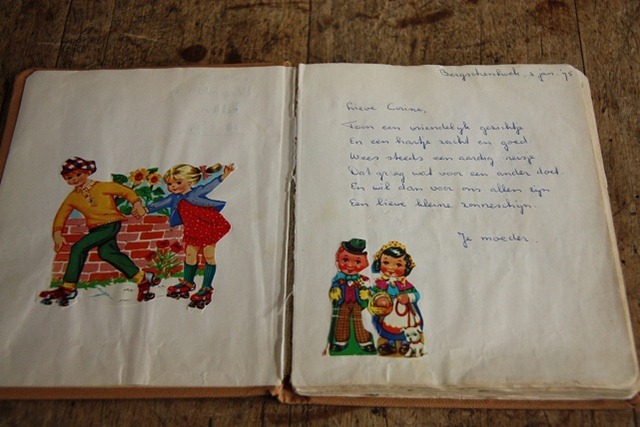 Bergschenhoek, 3 jan. '75
Lieve Corine,
Toon een vriendelijk gezichtje
En een hartje zacht en goed
Wees steeds een aardig meisje
Dat graag wat voor een ander doet.
En wil dan voor ons allen zijn
Een lieve kleine zonneschijn.
Je moeder.